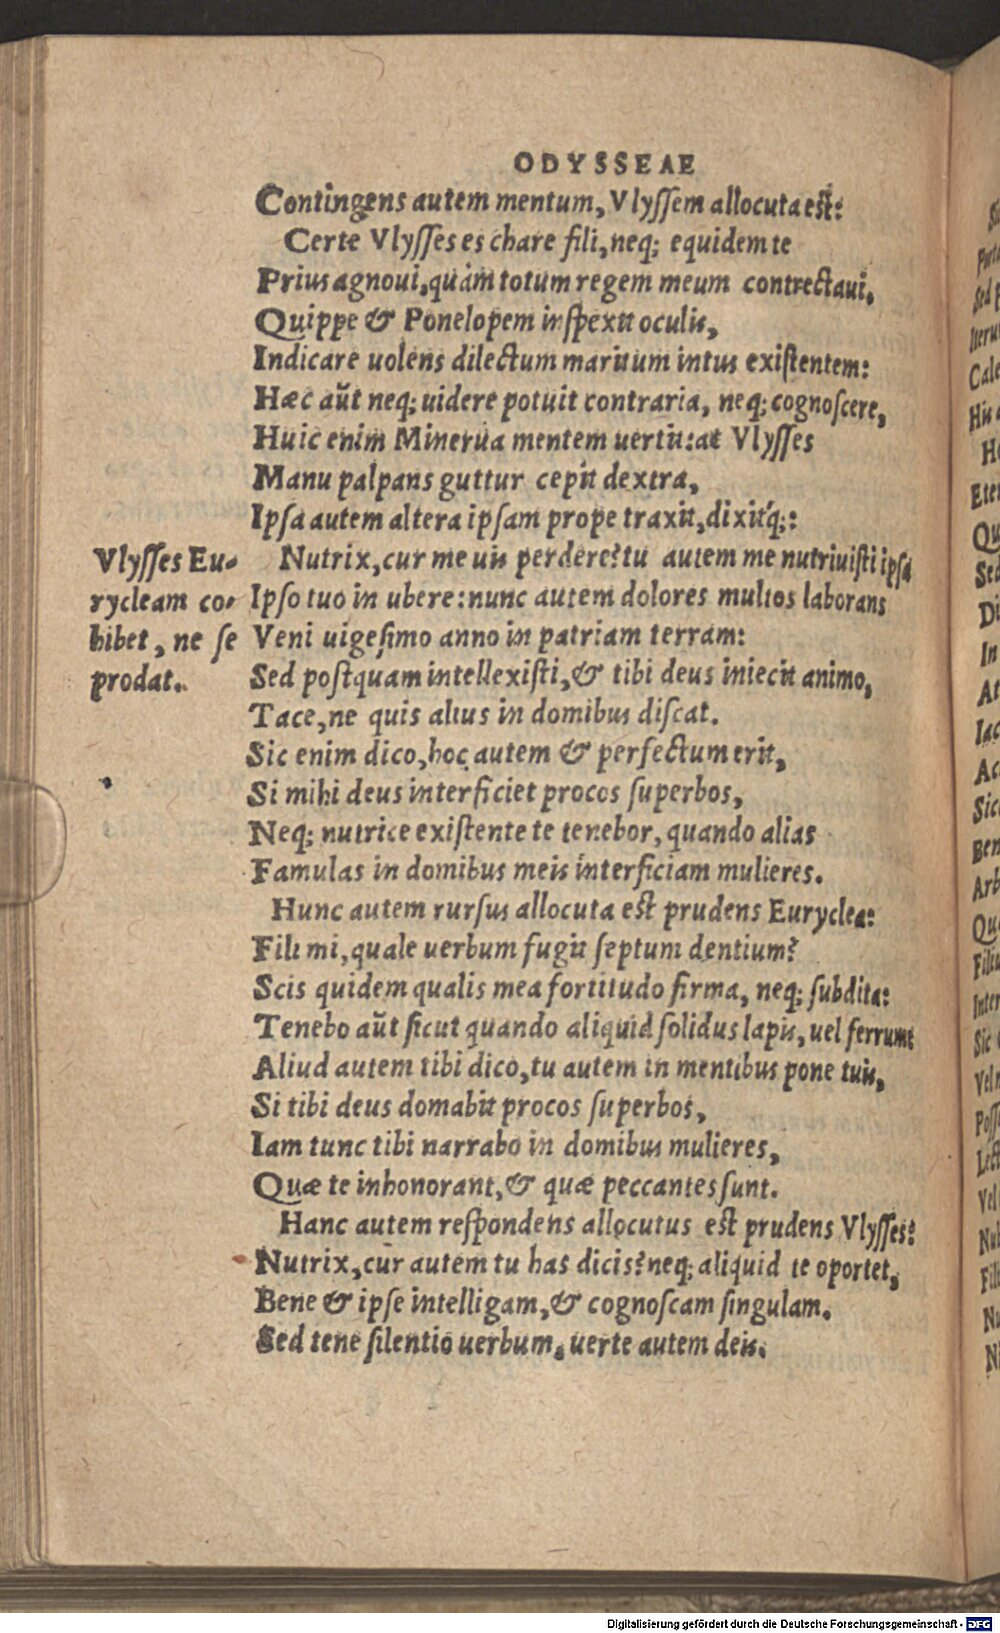 ODYSSEAE
Contingens autem mentum, Vlyſſem allocuta est:
Certe Vlyſſes es chare fili, neq; equidem te
Prius agnoui, quàm totum regem meum contrectaui,
Quippe & Ponelopem inſpexit oculis,
Indicare uolens dilectum maritum intus exiſtentem:
Hæc aũt neq; uidere potuit contraria, neq; cognoſcere,
Huic enim Minerua mentem uertit: at Vlyſſes
Manu palpans guttur cepit dextra,
Ipſa autem altera ipſam prope traxit, dixitq́;:
Nutrix, cur me uis perdere? tu autem me nutriuiſti ipſa
Vlyſſes Eu-
rycleam co-
hibet, ne ſe
prodat.
Ipſo tuo in ubere: nunc autem dolores multos laborans
Veni uigeſimo anno in patriam terram:
Sed poſtquam intellexiſti, & tibi deus iniecit animo,
Tace, ne quis alius in domibus diſcat.
Sic enim dico, hoc autem & perfectum erit,
Si mihi deus interficiet procos ſuperbos,
Neq; nutrice exiſtente te tenebor, quando alias
Famulas in domibus meis interficiam mulieres.
Hunc autem rurſus allocuta est prudens Euryclea:
Fili mi, quale uerbum fugit ſeptum dentium?
Scis quidem qualis mea fortitudo firma, neq; ſubdita:
Tenebo aũt ſicut quando aliquid ſolidus lapis, uel ferrum:
Aliud autem tibi dico, tu autem in mentibus pone tuis,
Si tibi deus domabit procos ſuperbos,
Iam tunc tibi narrabo in domibus mulieres,
Quæ te inhonorant, & quæ peccantes ſunt.
Hanc autem reſpondens allocutus est prudens Vlyſſes:
Nutrix, cur autem tu has dicis? neq; aliquid te oportet,
Bene & ipſe intelligam, & cognoſcam ſingulam.
Sed tene ſilentio uerbum, uerte autem deis.
Digitalisierung gefördert durch die Deutsche Forschungsgemeinschaft - DFG